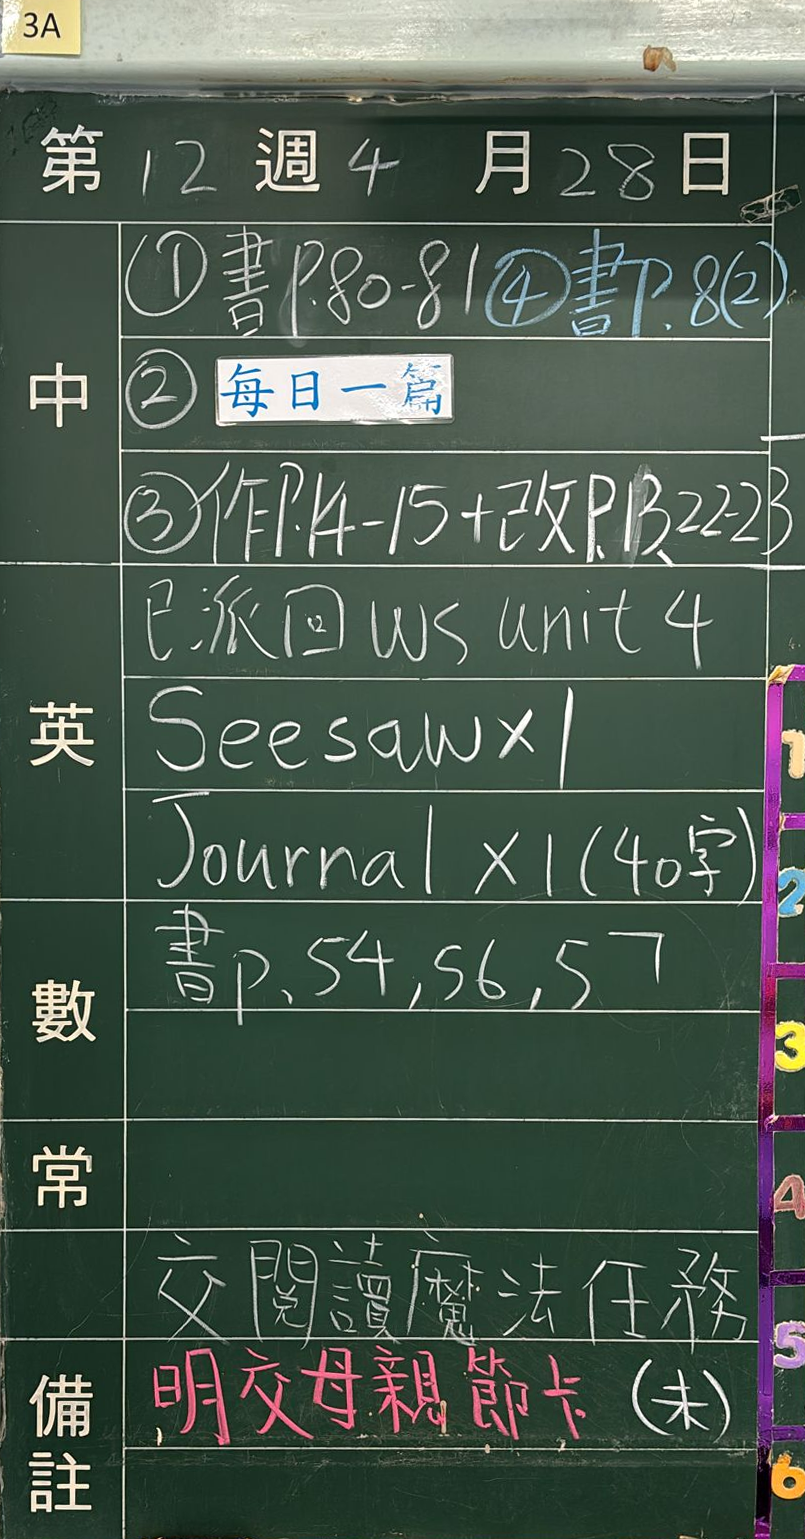 3A
第 12 週 4 月 28 日
中
① 書P.80-81 ④ 書P.8(2)
② 每日一篇
③ 作P.14-15+改P.13,22-23
英
已派回 WS unit 4
Seesaw x1
Journal x1 (40字)
數
書p.54,56,57
常
交閱讀魔法任務
備註
明交母親節卡 (未)
1
2
3
4
5
6